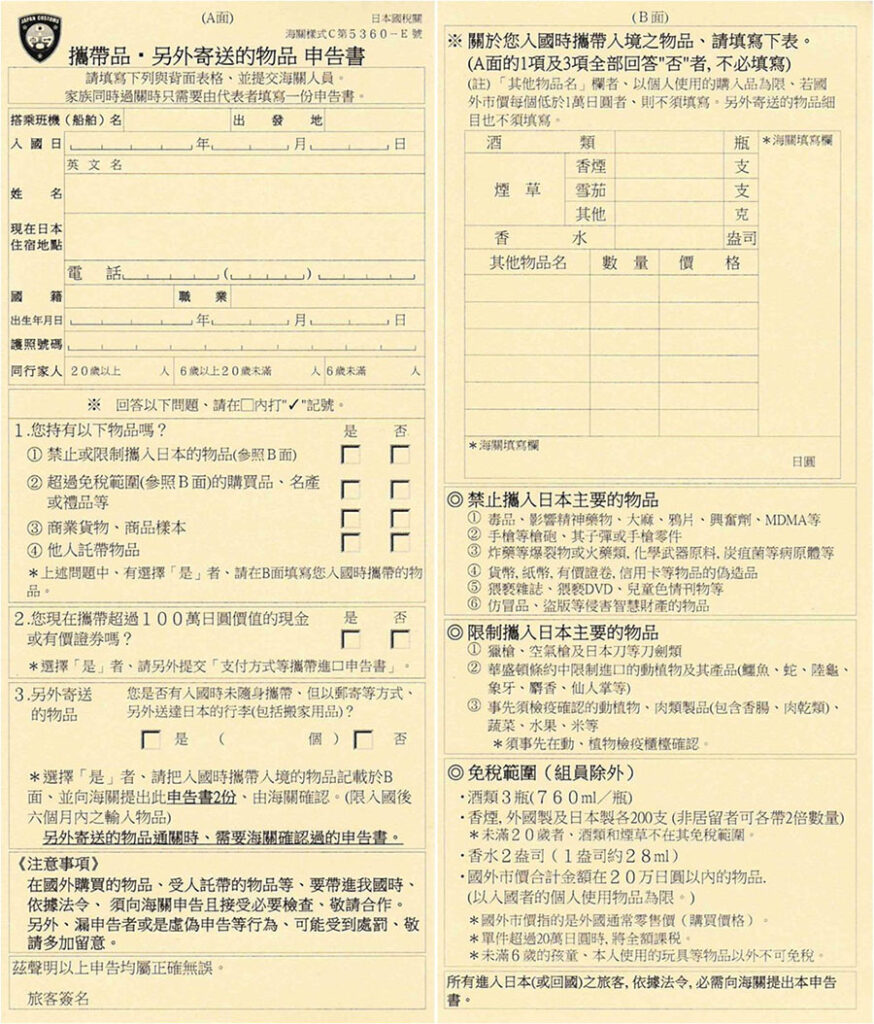 (A面)
日本國稅關
海關樣式C第5360-E號
JAPAN CUSTOMS
攜帶品・另外寄送的物品 申告書
請填寫下列與背面表格、並提交海關人員。
家族同時過關時只需要由代表者填寫一份申告書。
搭乘班機（船舶）名 出發地
入國日 年 月 日
英文名
姓名
現在日本
住宿地點
電話 ( )
國籍 職業
出生年月日 年 月 日
護照號碼
同行家人 20歲以上 人 6歲以上20歲未滿 人 6歲未滿 人
※ 回答以下問題、請在□內打"✓"記號。
1.您持有以下物品嗎？ 是 否
① 禁止或限制攜入日本的物品(參照B面)
② 超過免稅範圍(參照B面)的購買品、名產
或禮品等
③ 商業貨物、商品樣本
④ 他人託帶物品
＊上述問題中、有選擇「是」者、請在B面填寫您入國時攜帶的物
品。
2.您現在攜帶超過100萬日圓價值的現金 是 否
或有價證券嗎？
＊選擇「是」者、請另外提交「支付方式等攜帶進口申告書」。
3.另外寄送 您是否有入國時未隨身攜帶、但以郵寄等方式、
的物品 另外送達日本的行李(包括搬家用品)？
是 （ 個 ） 否
＊選擇「是」者、請把入國時攜帶入境的物品記載於B
面、並向海關提出此申告書2份、由海關確認。(限入國後
六個月內之輸入物品)
另外寄送的物品通關時、需要海關確認過的申告書。
《注意事項》
在國外購買的物品、受人託帶的物品等、要帶進我國時、
依據法令、須向海關申告且接受必要檢查、敬請合作。
另外、漏申告者或是虛偽申告等行為、可能受到處罰、敬
請多加留意。
茲聲明以上申告均屬正確無誤。
旅客簽名
(B面)
※ 關於您入國時攜帶入境之物品、請填寫下表。
(A面的1項及3項全部回答"否"者, 不必填寫)
(註)「其他物品名」欄者、以個人使用的購入品為限、若國
外市價每個低於1萬日圓者、則不須填寫。另外寄送的物品細
目也不須填寫。
酒類 瓶 ＊海關填寫欄
煙草 香煙 支
雪茄 支
其他 克
香水 盎司
其他物品名 數量 價格
＊海關填寫欄
日圓
◎ 禁止攜入日本主要的物品
① 毒品、影響精神藥物、大麻、鴉片、興奮劑、MDMA等
② 手槍等槍砲、其子彈或手槍零件
③ 炸藥等爆裂物或火藥類, 化學武器原料, 炭疽菌等病原體等
④ 貨幣, 紙幣, 有價證卷, 信用卡等物品的偽造品
⑤ 猥褻雜誌、猥褻DVD、兒童色情刊物等
⑥ 仿冒品、盜版等侵害智慧財產的物品
◎ 限制攜入日本主要的物品
① 獵槍、空氣槍及日本刀等刀劍類
② 華盛頓條約中限制進口的動植物及其產品(鱷魚、蛇、陸龜、
象牙、麝香、仙人掌等)
③ 事先須檢疫確認的動植物、肉類製品(包含香腸、肉乾類)、
蔬菜、水果、米等
＊須事先在動、植物檢疫櫃檯確認。
◎ 免稅範圍（組員除外）
・酒類3瓶(760ml／瓶)
・香煙, 外國製及日本製各200支 (非居留者可各帶2倍數量)
＊未滿20歲者、酒類和煙草不在其免稅範圍。
・香水2盎司（1盎司約28ml）
・國外市價合計金額在20万日圓以內的物品.
(以入國者的個人使用物品為限。)
＊國外市價指的是外國通常零售價（購買價格）。
＊單件超過20萬日圓時, 將全額課稅。
＊未滿6歲的孩童、本人使用的玩具等物品以外不可免稅。
所有進入日本(或回國)之旅客, 依據法令, 必需向海關提出本申告
書。